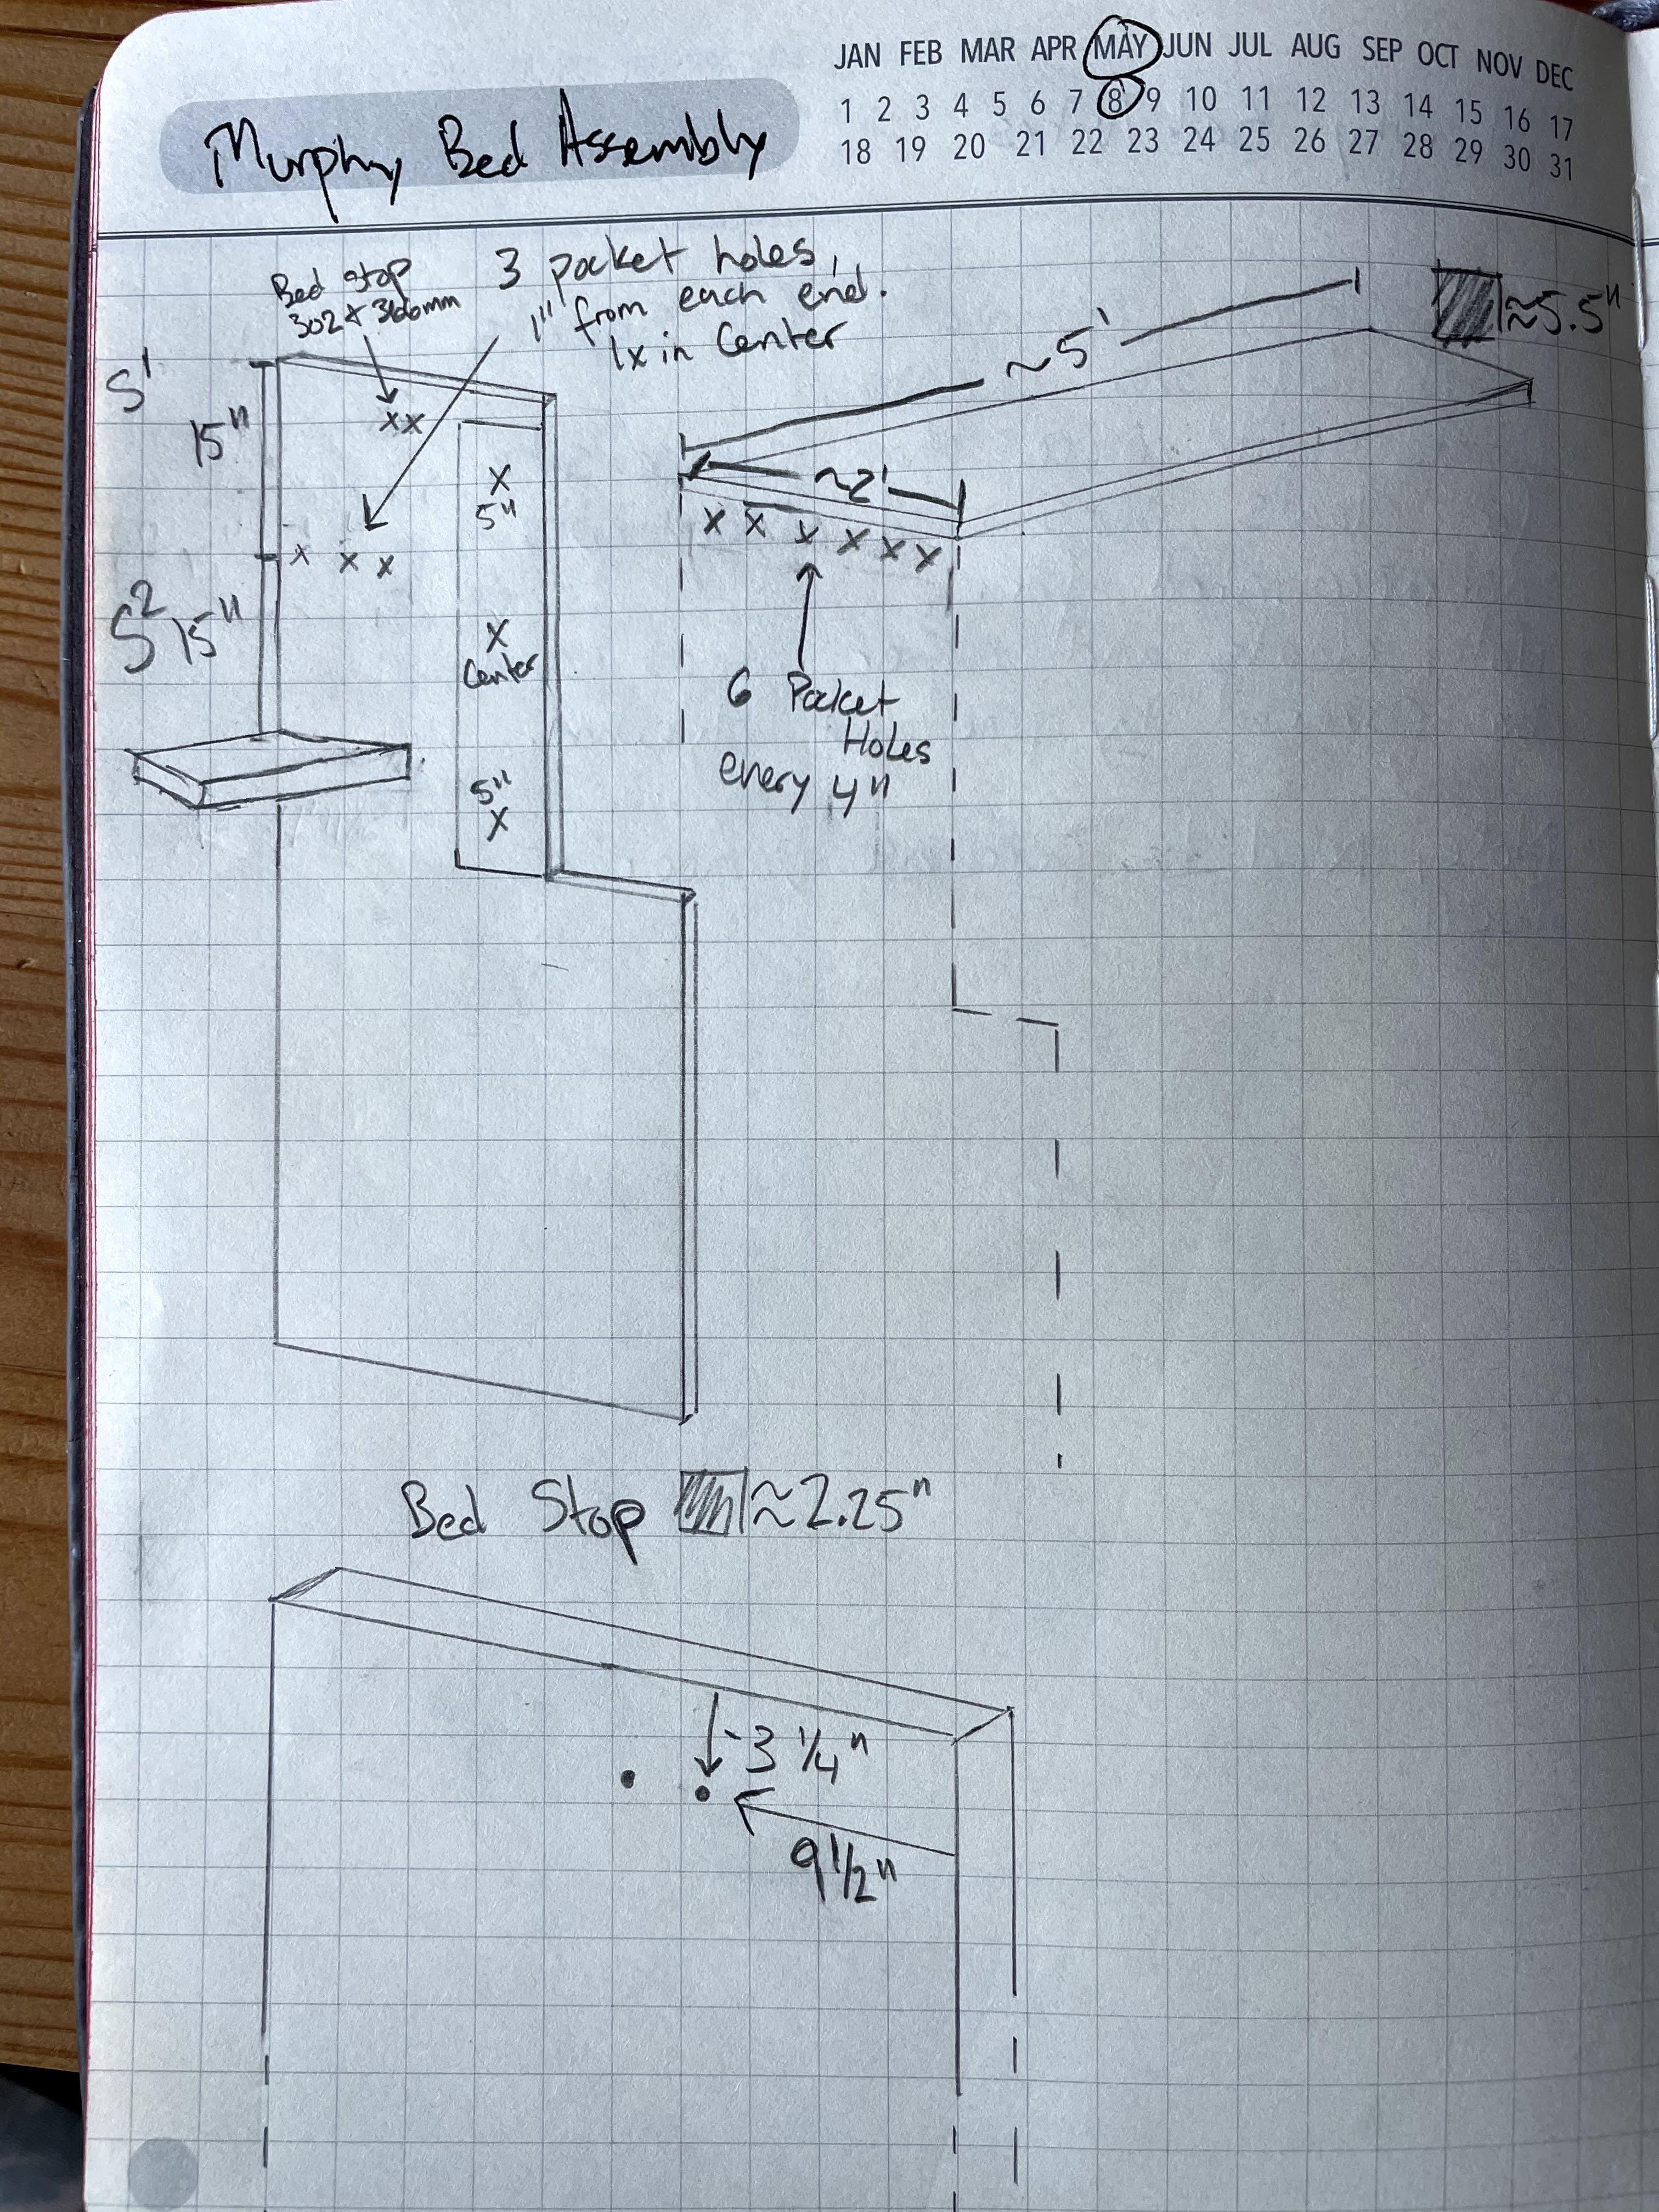 JAN FEB MAR APR MAY JUN JUL AUG SEP OCT NOV DEC
1 2 3 4 5 6 7 8 9 10 11 12 13 14 15 16 17
18 19 20 21 22 23 24 25 26 27 28 29 30 31
Murphy Bed Assembly
Bed Stop
302 & 366mm
3 pocket holes,
1" from each end.
1x in Center
≈5.5"
~5'
S1
15"
xx
x
5"
~2'
x x x x x x
x x x
S2 15"
x
Center
6 Pocket
Holes
every 4"
5"
x
Bed Stop ≈2.25"
3 1/4"
9 1/2"